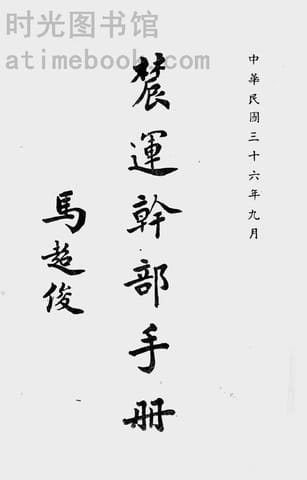 时光图书馆
atimebook.com
中華民國三十六年九月
農運幹部手册
馬超俊